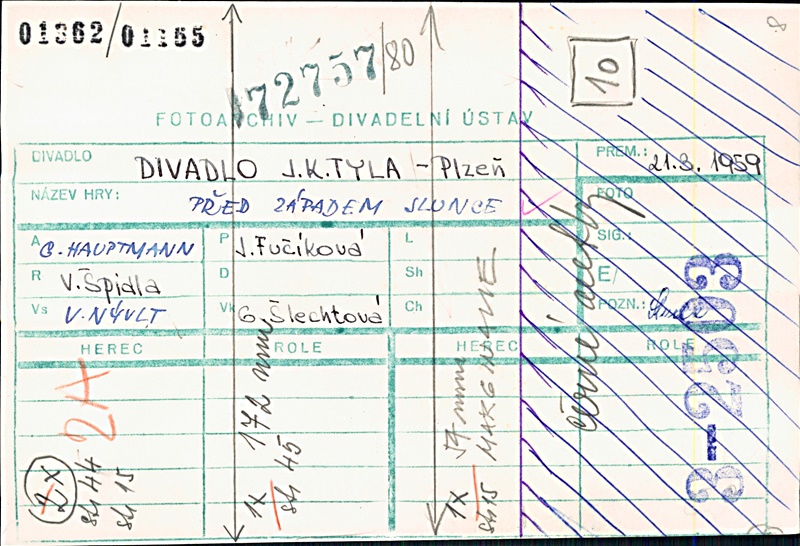 01362/01155
72757/80
10
8
FOTOARCHIV — DIVADELNÍ ÚSTAV
DIVADLO DIVADLO J.K.TYLA - Plzeň PREM.: 21.3. 1959
NÁZEV HRY: PŘED ZÁPADEM SLUNCE FOTO
A G. HAUPTMANN P J. Fučíková L SIG.:
R V. Špidla D Sh E/
Vs V. NÝVLT Vk G. Šlechtová Ch POZN.:
HEREC ROLE HEREC ROLE
2x
str 44
str 15
2H
1x 172 mm
str 45
1x 54 mm
str 15
černé